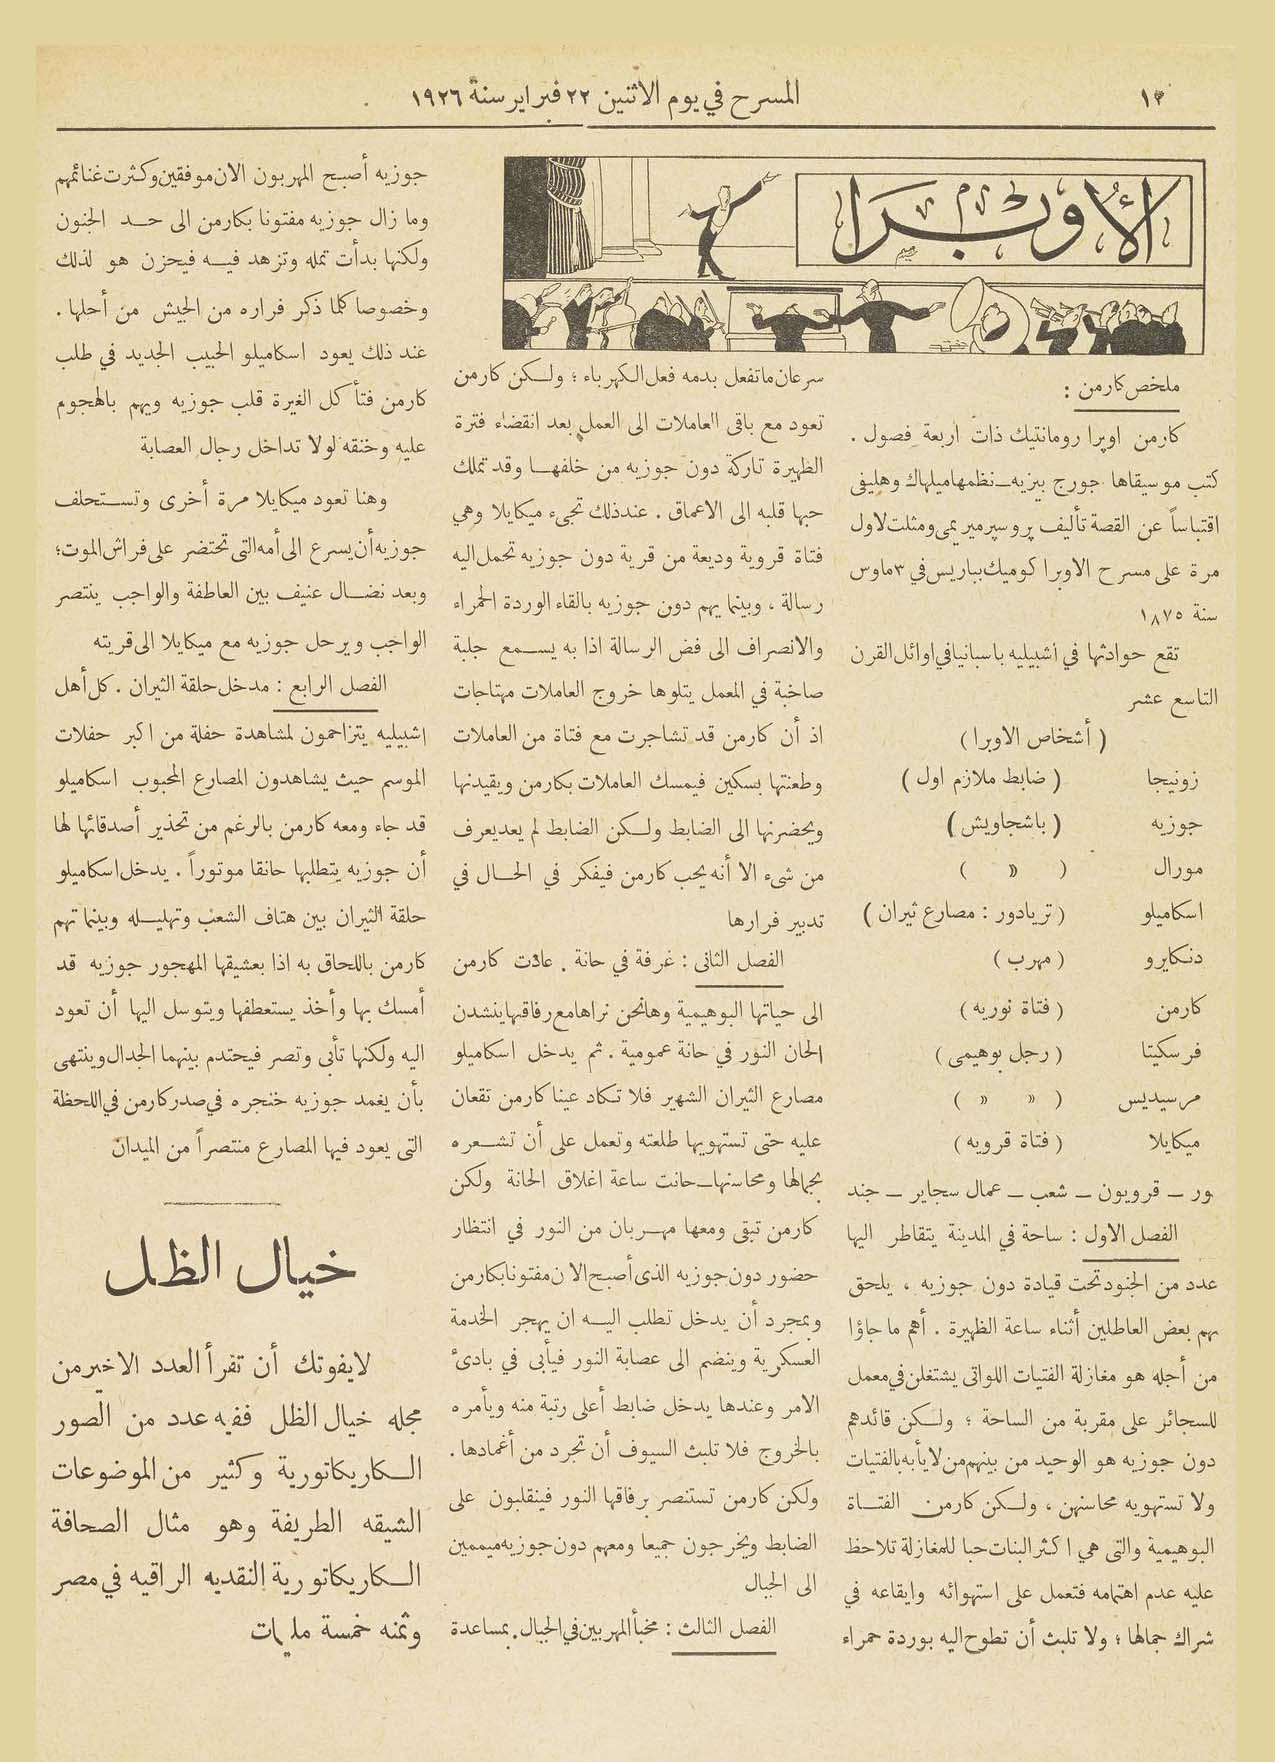 ١٢
المسرح في يوم الاثنين ٢٢ فبراير سنة ١٩٢٦
الأوبرا
ملخص كارمن :
كارمن اوبرا رومانتيك ذات اربعة فصول .
كتب موسيقاها جورج بيزيه ــ نظمها ميلهاك وهليفى
اقتباساً عن القصة تأليف پروسپر ميريمى ومثلت لاول
مرة على مسرح الاوبرا كوميك بباريس في ٣ مارس
سنة ١٨٧٥
تقع حوادثها في اشبيليه باسبانيا في اوائل القرن
التاسع عشر
( أشخاص الاوبرا )
زونيجا ( ضابط ملازم اول )
جوزيه ( باشجاويش )
مورال ( » )
اسكاميلو ( تريادور : مصارع ثيران )
دنكايرو ( مهرب )
كارمن ( فتاة نوريه )
فرسكيتا ( رجل بوهيمى )
مرسيديس ( » » )
ميكايلا ( فتاة قرويه )
ور ــ قرويون ــ شعب ــ عمال سجاير ــ جند
الفصل الاول : ساحة في المدينة يتقاطر اليها
عدد من الجنود تحت قيادة دون جوزيه ، يلحق
بهم بعض العاطلين أثناء ساعة الظهيرة . أهم ما جاؤا
من أجله هو مغازلة الفتيات اللواتى يشتغلن في معمل
للسجائر على مقربة من الساحة ؛ ولكن قائدهم
دون جوزيه هو الوحيد من بينهم من لا يأبه بالفتيات
ولا تستهويه محاسنهن ، ولكن كارمن الفتاة
البوهيمية والتى هي اكثر البنات حبا للمغازلة تلاحظ
عليه عدم اهتمامه فتعمل على استهوائه وايقاعه في
شراك جمالها ؛ ولا تلبث أن تطوح اليه بوردة حمراء
سرعان ما تفعل بدمه فعل الكهرباء ؛ ولكن كارمن
تعود مع باقى العاملات الى العمل بعد انقضاء فترة
الظهيرة تاركة دون جوزيه من خلفها وقد تملك
حبها قلبه الى الاعماق . عندذلك تجىء ميكايلا وهي
فتاة قروية وديعة من قرية دون جوزيه تحمل اليه
رسالة ، وبينما يهم دون جوزيه بالقاء الوردة الحمراء
والانصراف الى فض الرسالة اذا به يسمع جلبة
صاخبة في المعمل يتلوها خروج العاملات مهتاجات
اذ أن كارمن قد تشاجرت مع فتاة من العاملات
وطعنتها بسكين فيمسك العاملات بكارمن ويقيدنها
ويحضرنها الى الضابط ولكن الضابط لم يعد يعرف
من شىء الا أنه يحب كارمن فيفكر في الحال في
تدبير فرارها
الفصل الثانى : غرفة في حانة . عادت كارمن
الى حياتها البوهيمية وها نحن نراها مع رفاقها ينشدن
الحان النور في حانة عمومية . ثم يدخل اسكاميلو
مصارع الثيران الشهير فلا تكاد عينا كارمن تقعان
عليه حتى تستهويها طلعته وتعمل على أن تشعره
بجمالها ومحاسنها ــ حانت ساعة اغلاق الحانة ولكن
كارمن تبقى ومعها مهربان من النور في انتظار
حضور دون جوزيه الذى أصبح الان مفتونا بكارمن
وبمجرد أن يدخل تطلب اليه ان يهجر الخدمة
العسكرية وينضم الى عصابة النور فيأبى في بادئ
الامر وعندها يدخل ضابط أعلى رتبة منه ويأمره
بالخروج فلا تلبث السيوف أن تجرد من أغمادها .
ولكن كارمن تستنصر برفاقها النور فينقلبون على
الضابط ويخرجون جميعا ومعهم دون جوزيه ميممين
الى الجبال
الفصل الثالث : مخبأ المهربين في الجبال . بمساعدة
جوزيه أصبح المهربون الان موفقين وكثرت غنائمهم
وما زال جوزيه مفتونا بكارمن الى حد الجنون
ولكنها بدأت تمله وتزهد فيه فيحزن هو لذلك
وخصوصا كلما ذكر فراره من الجيش من أجلها .
عند ذلك يعود اسكاميلو الحبيب الجديد في طلب
كارمن فتأكل الغيرة قلب جوزيه ويهم بالهجوم
عليه وخنقه لولا تداخل رجال العصابة
وهنا تعود ميكايلا مرة أخرى وتستحلف
جوزيه أن يسرع الى أمه التى تحتضر على فراش الموت ؛
وبعد نضال عنيف بين العاطفة والواجب ينتصر
الواجب ويرحل جوزيه مع ميكايلا الى قريته
الفصل الرابع : مدخل حلقة الثيران . كل أهل
اشبيليه يتزاحمون لمشاهدة حفلة من اكبر حفلات
الموسم حيث يشاهدون المصارع المحبوب اسكاميلو
قد جاء ومعه كارمن بالرغم من تحذير أصدقائها لها
أن جوزيه يتطلبها حانقا موتوراً . يدخل اسكاميلو
حلقة الثيران بين هتاف الشعب وتهليله وبينما تهم
كارمن باللحاق به اذا بعشيقها المهجور جوزيه قد
أمسك بها وأخذ يستعطفها ويتوسل اليها أن تعود
اليه ولكنها تأبى وتصر فيحتدم بينهما الجدال وينتهى
بأن يغمد جوزيه خنجره في صدر كارمن في اللحظة
التى يعود فيها المصارع منتصراً من الميدان
خيال الظل
لايفوتك أن تقرأ العدد الاخير من
مجله خيال الظل ففيه عدد من الصور
الكاريكاتورية وكثير من الموضوعات
الشيقه الطريفة وهو مثال الصحافة
الكاريكاتورية النقديه الراقيه في مصر
وثمنه خمسة مليمات